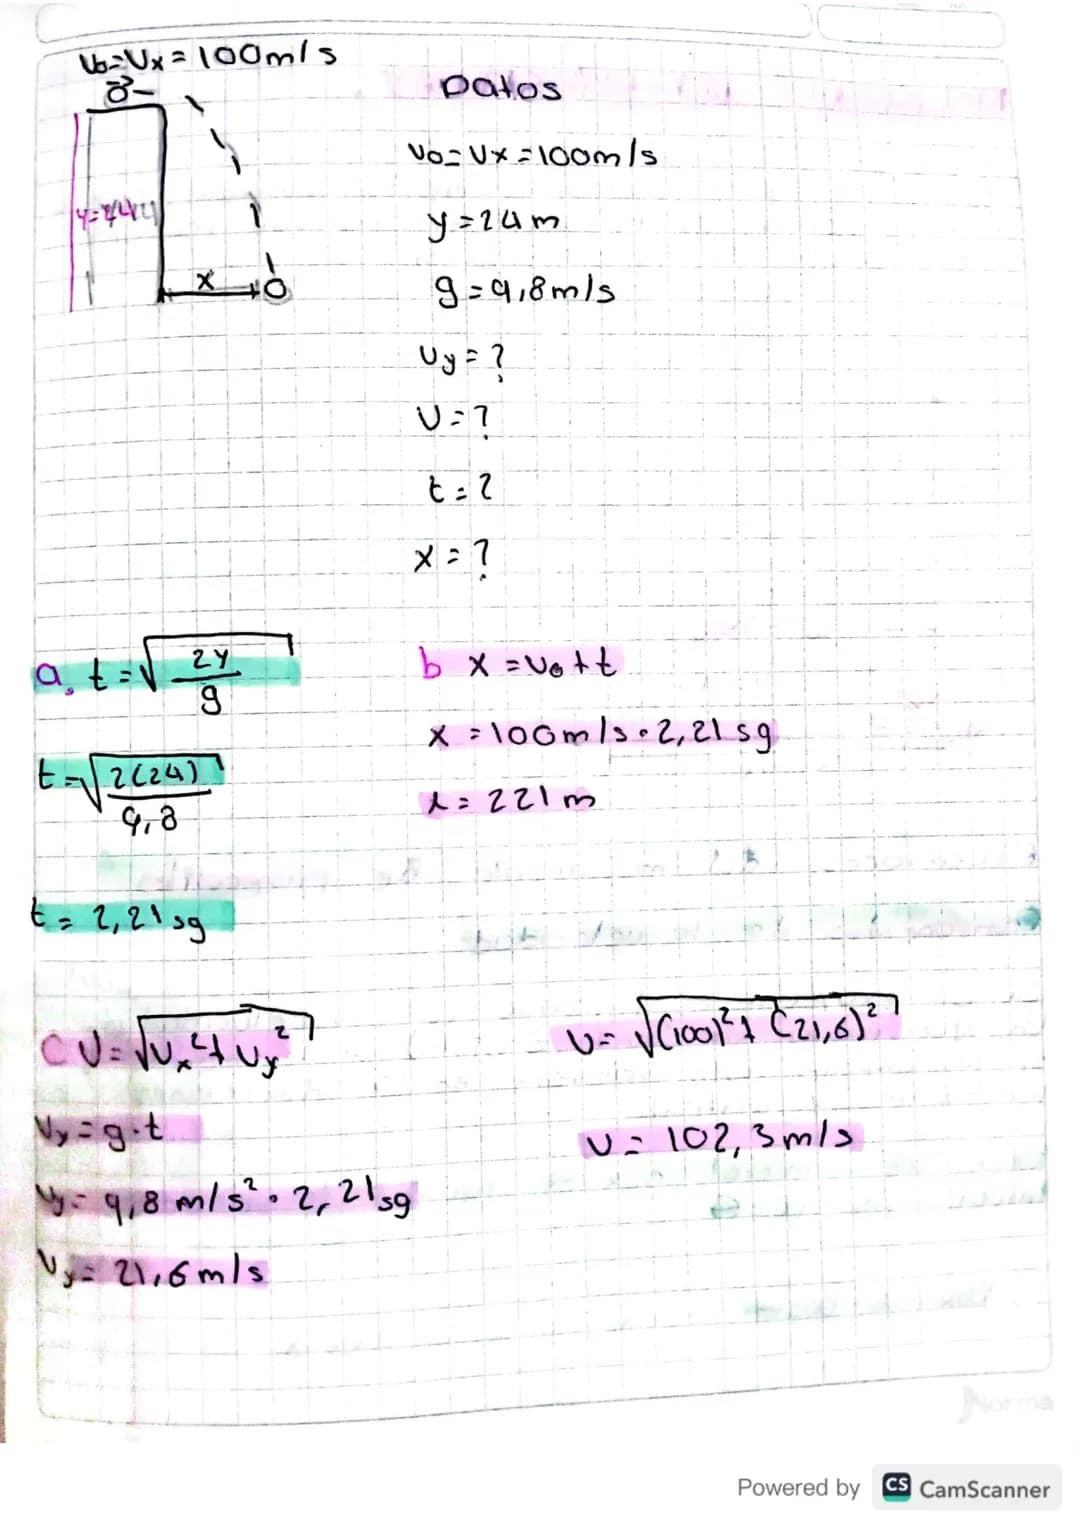 Vo=Vx=100m/s
Datos
Vo=Vx=100m/s
y=24m
g=9,8m/s
Vy=?
V=?
t=?
x=?
a, t=√2y/g
t=√2(24)/9,8
t=2,21sg
b x=Vo+t
x=100m/s·2,21sg
x=221m
x
c V=√Vx²+Vy²
Vy=g·t
Vy=9,8m/s²·2,21sg
Vy=21,6m/s
V=√(100)²+(21,6)²
V=102,3m/s
Norma
Powered by CS CamScanner